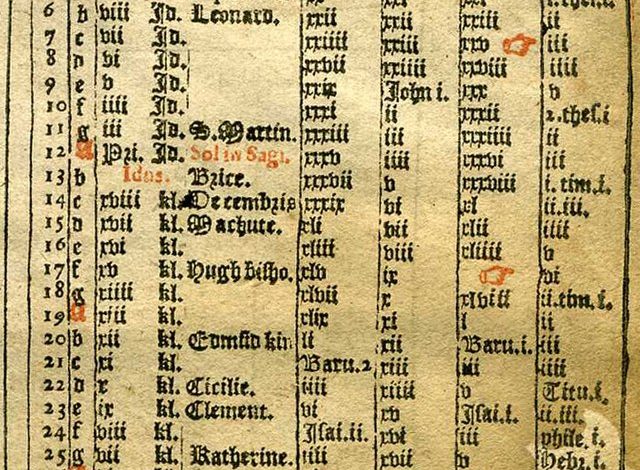 6 b viii Id. Leonard. xxii i xxiii ii
7 c vii Id. xxiiii xxiii xxv iii
8 d vi Id. xxvii xxiiii xxviii iiii
9 e v Id. xxix John i. xxx v
10 f iiii Id. xxxi ii 2.thes.i
11 g iii Id. S. Martin. xxxiii iii xxxiiii ii
12 a Pri. Id. Sol in Sagi. xxxv iiii xxxvi iii
13 b Idus. Brice. xxxvii v xxxviii i.tim.i.
14 c xviii kl. Decembris xxxix vi xl ii.iii.
15 d xvii kl. Machute. xli vii xlii iiii
16 e xvi kl. xliii viii xliiii v
17 f xv kl. Hugh bisho. xlv ix vi
18 g xiiii kl. xlvii x xlviii ii.tim.i.
19 a xiii kl. xlix xi l ii
20 b xii kl. Edmūd kin li xii Baru.i. iii
21 c xi kl. Baru.2 xiii iii iiii
22 d x kl. Cicilie. iiii xiiii v Titu.i.
23 e ix kl. Clement. vi xv Isai.i. ii.iii.
24 f viii kl. Isai.ii. xvi iii phile.i.
25 g vii kl. Katherine. iiii xvii v Hebr.i.